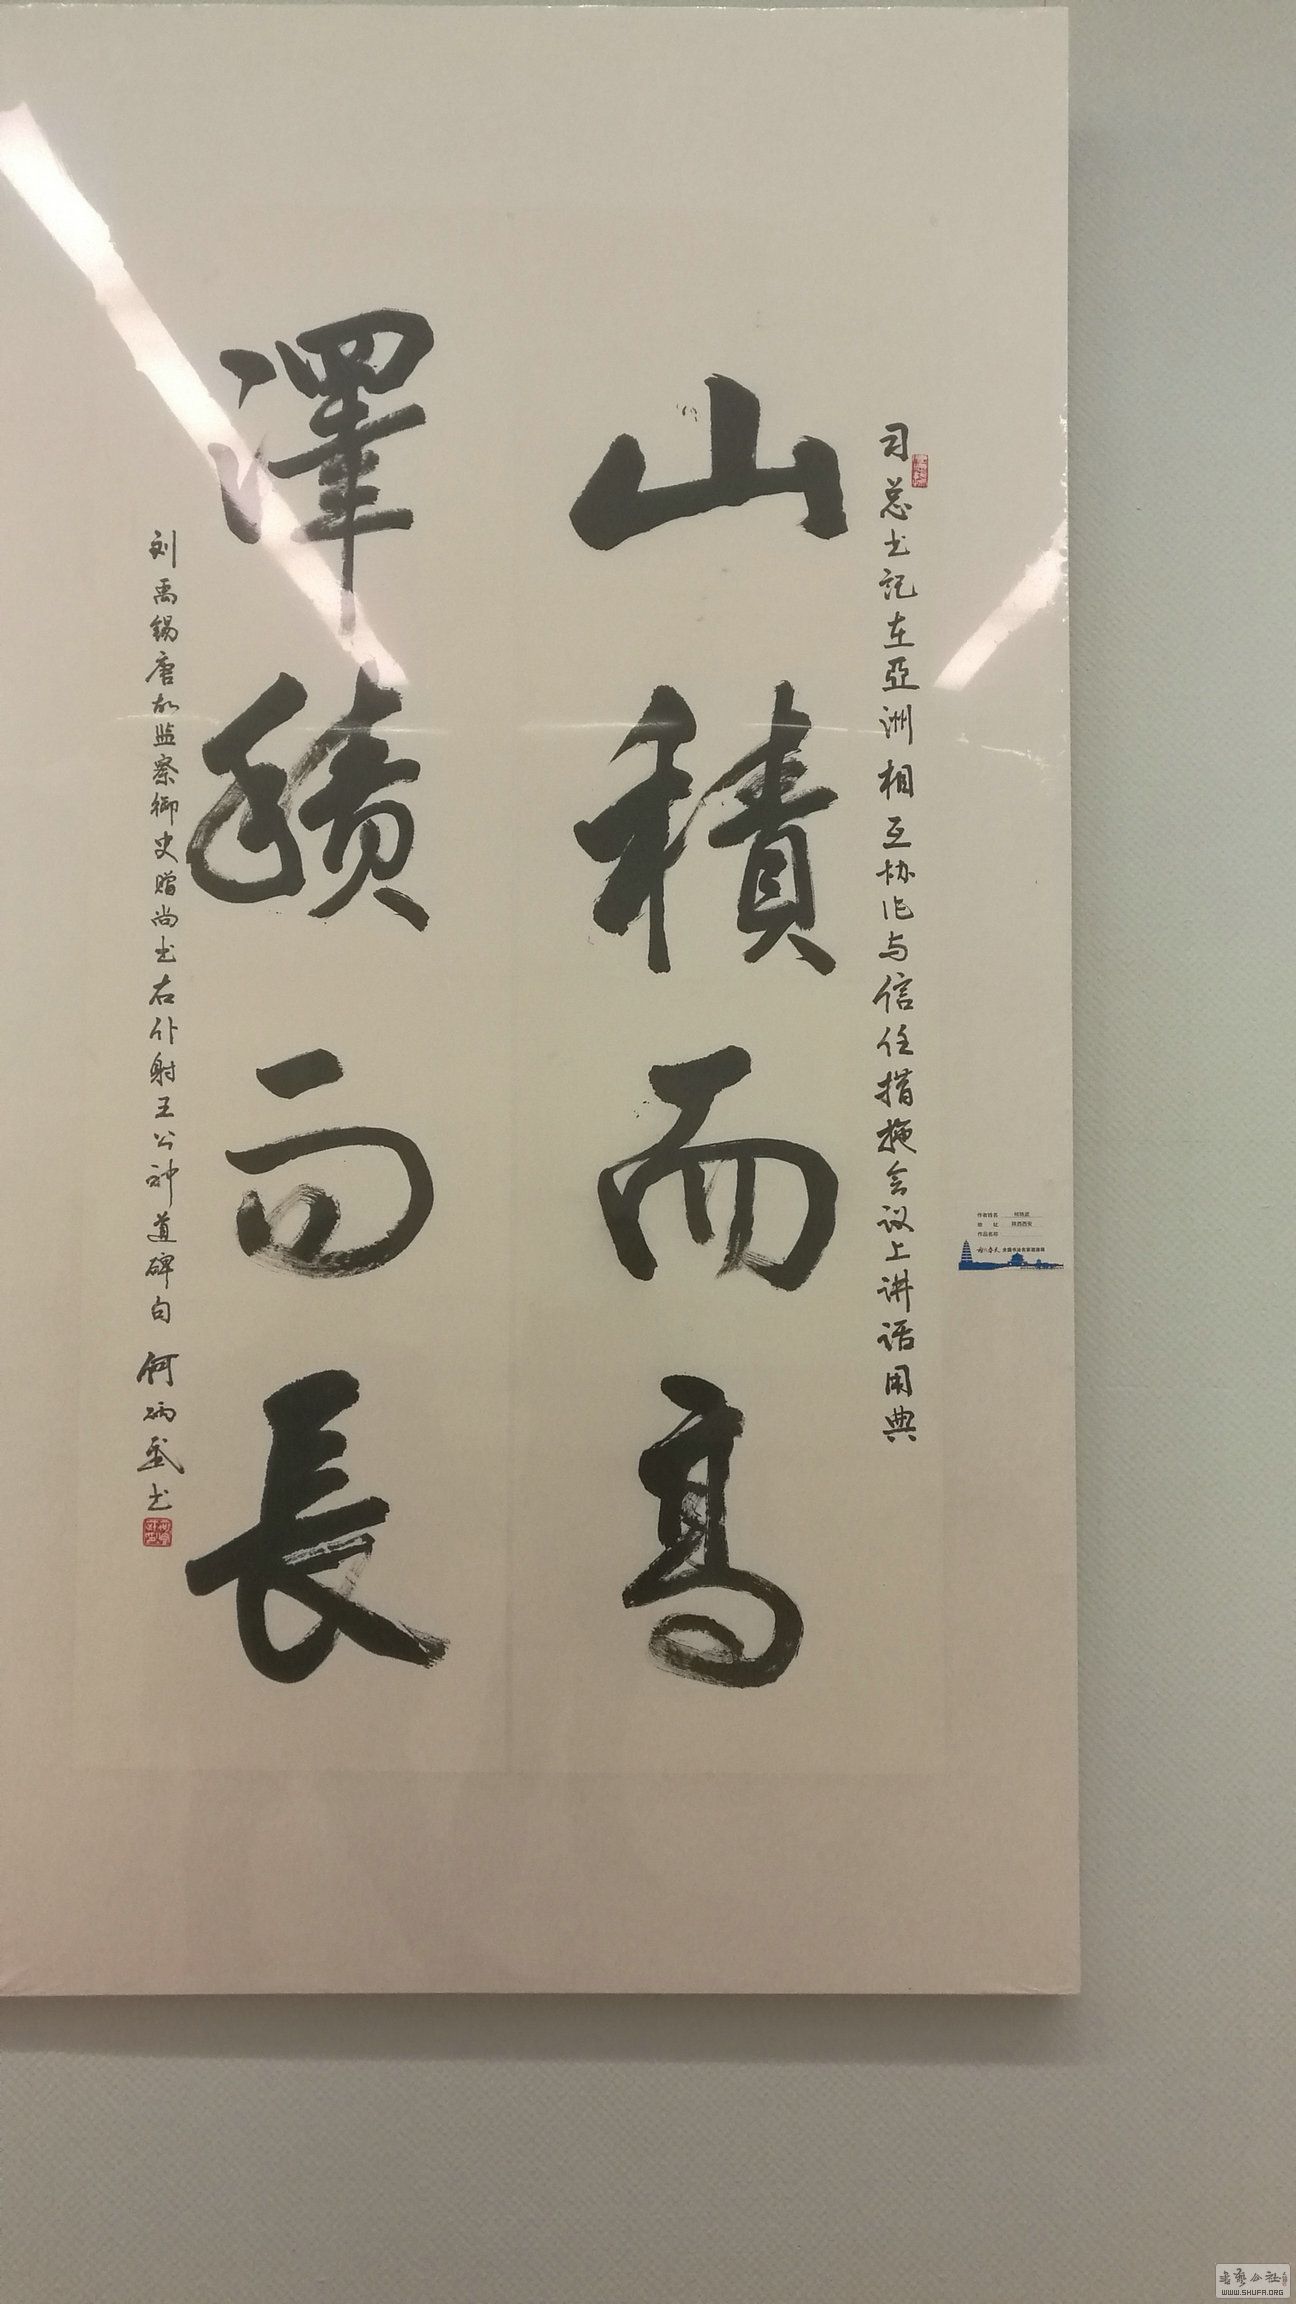 习总书记在亞洲相互协作与信任措施会议上讲话用典
山積而高
澤積而長
刘禹锡唐故监察御史赠尚书右仆射王公神道碑句 何炳武书
作者姓名 何炳武
地 址 陕西西安
作品名称
全国书法名家邀请展
书艺公社
WWW.SHUFA.ORG